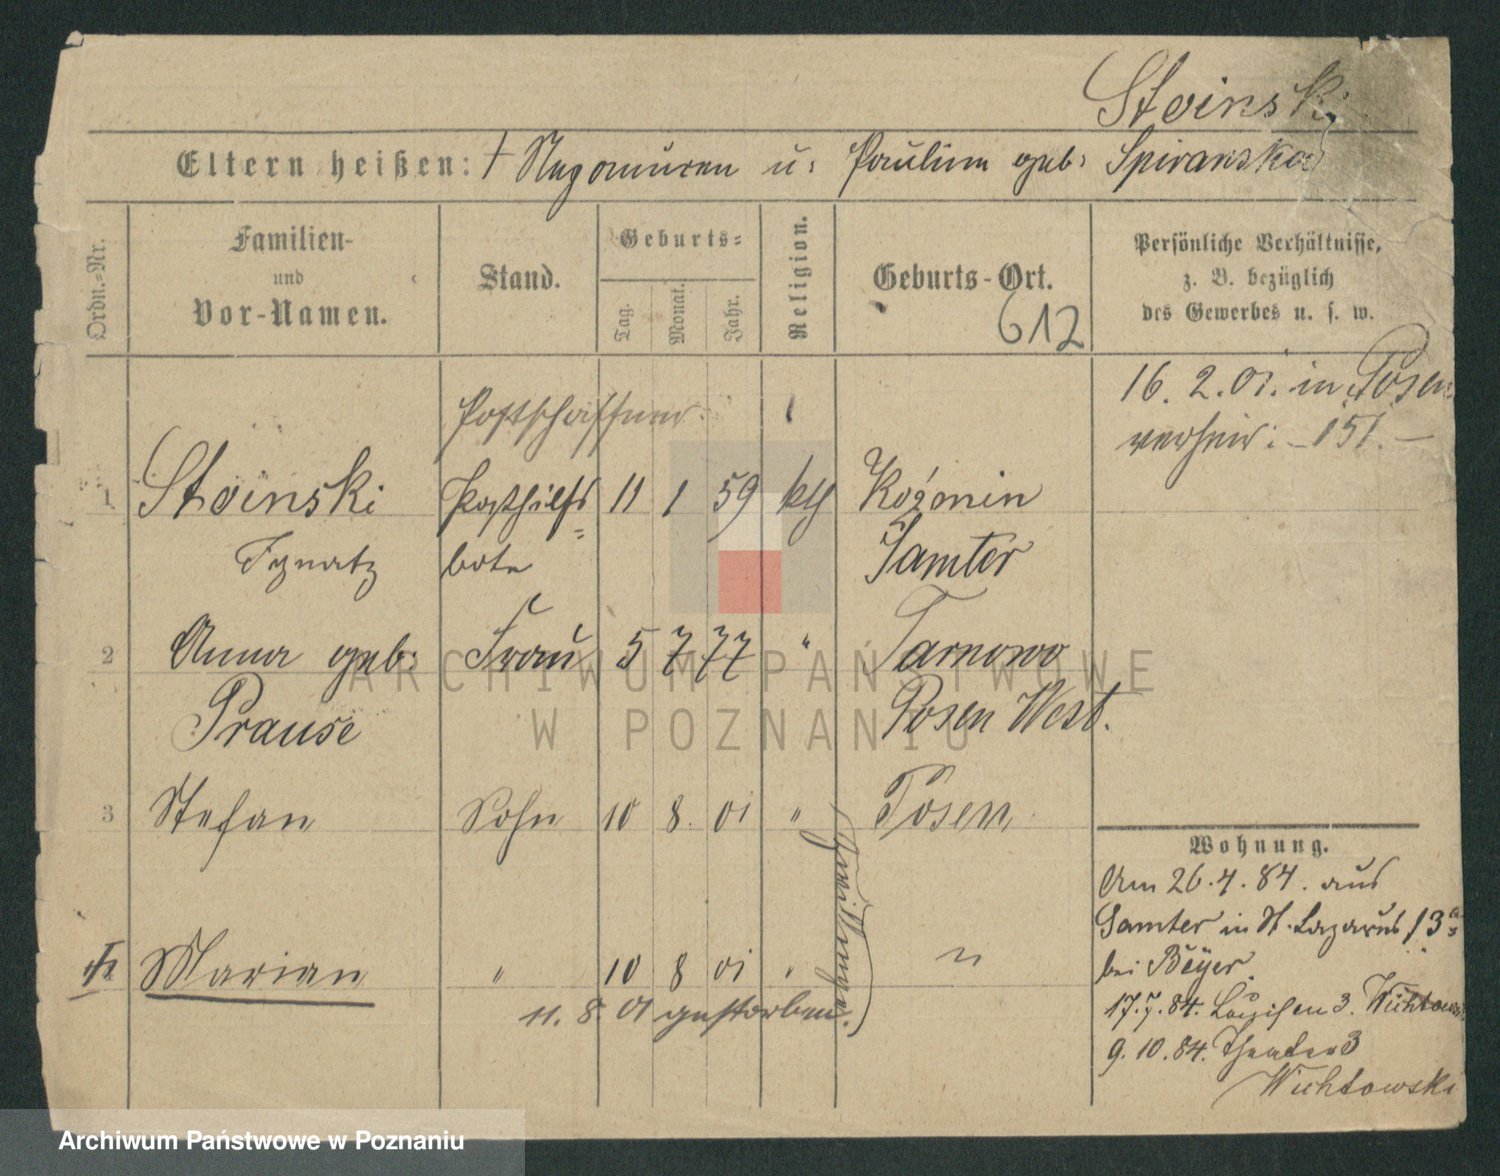 Stoinski
Eltern heißen: † Nepomuren u: Paulina geb: Spiranska
Ordn.-Nr.
Familien-
und
Vor-Namen.
Stand.
Geburts-
Tag.
Monat.
Jahr.
Religion.
Geburts-Ort.
612
Persönliche Verhältnisse,
z. B. bezüglich
des Gewerbes u. s. w.
16. 2. 01. in Posen
verheir: – 151. –
Postschaffner
1 Stoinski Posthilfs 11 1 59 kth Kozmin
Ignatz bote Samter
2 Anna geb: Frau 5 7 77 " Tarnowo
Prause Posen West.
3 Stefan Sohn 10 8. 01 " Posen
Zwillinge
Marian " 10 8 01 " "
11. 8. 01 gestorben.
Wohnung.
Am 26.4.84. aus
Samter in St. Lazarus 13
bei Beyer.
17.7.84. Louisen 3. Wichtowski
9.10.84. Theater 3
Wichtowski
ARCHIWUM PAŃSTWOWE
W POZNANIU
Archiwum Państwowe w Poznaniu